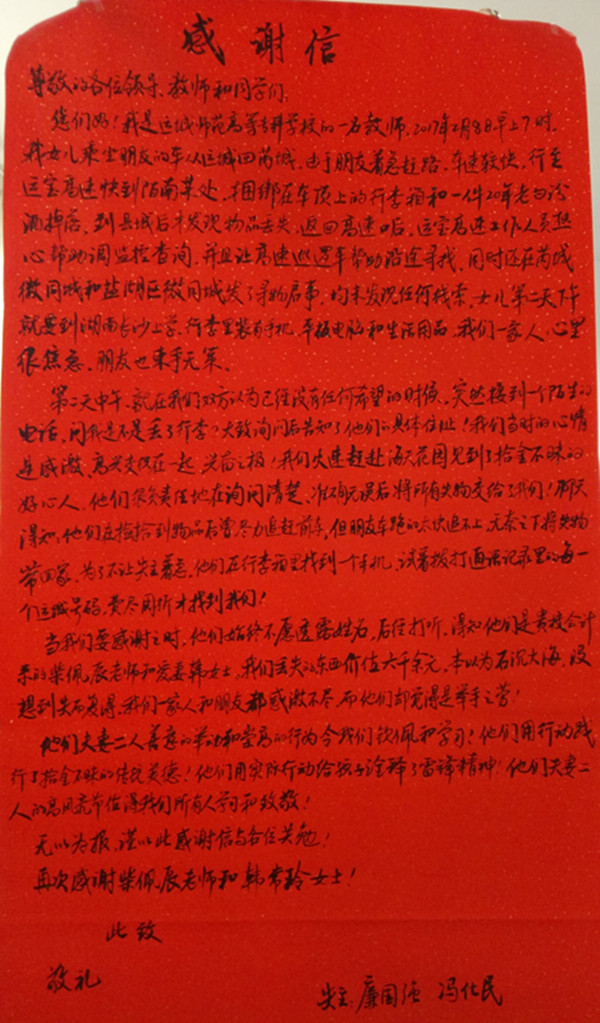 感谢信
尊敬的各位领导、教师和同学们:
您们好!我是运城师范高等专科学校的一名教师,2017年2月8日早上7时,
我女儿乘坐朋友的车从运城回芮城,由于朋友着急赶路,车速较快,行至
运宝高速快到陌南某处,捆绑在车顶上的行李箱和一件20年老白汾
酒掉落,到县城后才发现物品丢失,返回高速口后,运宝高速工作人员热
心帮助调监控查询,并且让高速巡逻车帮助沿途寻找,同时还在芮城
微同城和盐湖区微同城发了寻物启事,均未发现任何线索,女儿第二天下午
就要到湖南长沙上学,行李里装有手机、平板电脑和生活用品,我们一家人心里
很焦急,朋友也束手无策。
第二天中午,就在我们双方认为已经没有任何希望的时候,突然接到一个陌生的
电话,问我是不是丢了行李?大致询问后告知了他们的具体住址!我们当时的心情
是感激、高兴交织在一起,兴奋之极!我们火速赶赴海天花园见到了拾金不昧的
好心人,他们很负责任地在询问清楚、准确无误后将所有失物交给了我们!聊天
得知,他们在捡拾到物品后曾尽力追赶前车,但朋友车跑的太快追不上,无奈之下将失物
带回家,为了不让失主着急,他们在行李箱里找到一个手机,试着拨打通话记录里的每一
个运城号码,费尽周折才找到我们!
当我们要感谢之时,他们始终不愿透露姓名,后经打听,得知他们是贵校会计
系的柴佩辰老师和爱妻韩女士。我们丢失的东西价值六千余元,本以为石沉大海,没
想到失而复得,我们一家人和朋友都感激不尽,而他们却觉得是举手之劳!
他们夫妻二人善意的举动和崇高的行为令我们钦佩和学习!他们用行动践
行了拾金不昧的传统美德!他们用实际行动给孩子诠释了雷锋精神!他们夫妻二
人的高风亮节值得我们所有人学习和致敬!
无以为报,谨以此感谢信与各位共勉!
再次感谢柴佩辰老师和韩常玲女士!
此致
敬礼
失主:廉国强 冯仕民